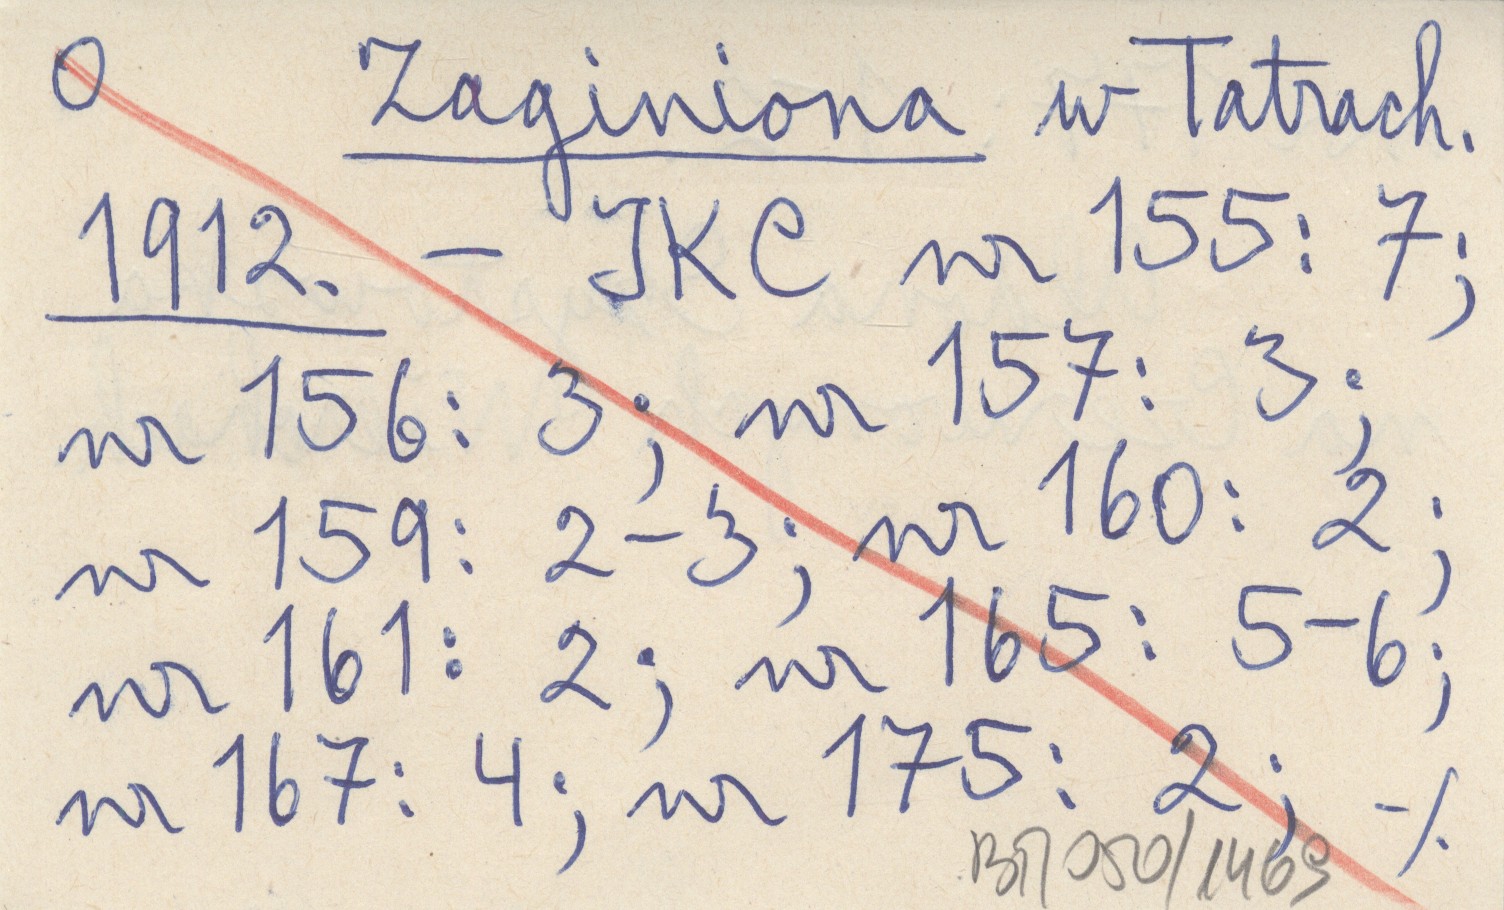 0 Zaginiona w Tatrach.
1912. – IKC nr 155: 7;
nr 156: 3; nr 157: 3;
nr 159: 2-3; nr 160: 2;
nr 161: 2; nr 165: 5-6;
nr 167: 4; nr 175: 2; -/.
050/1469